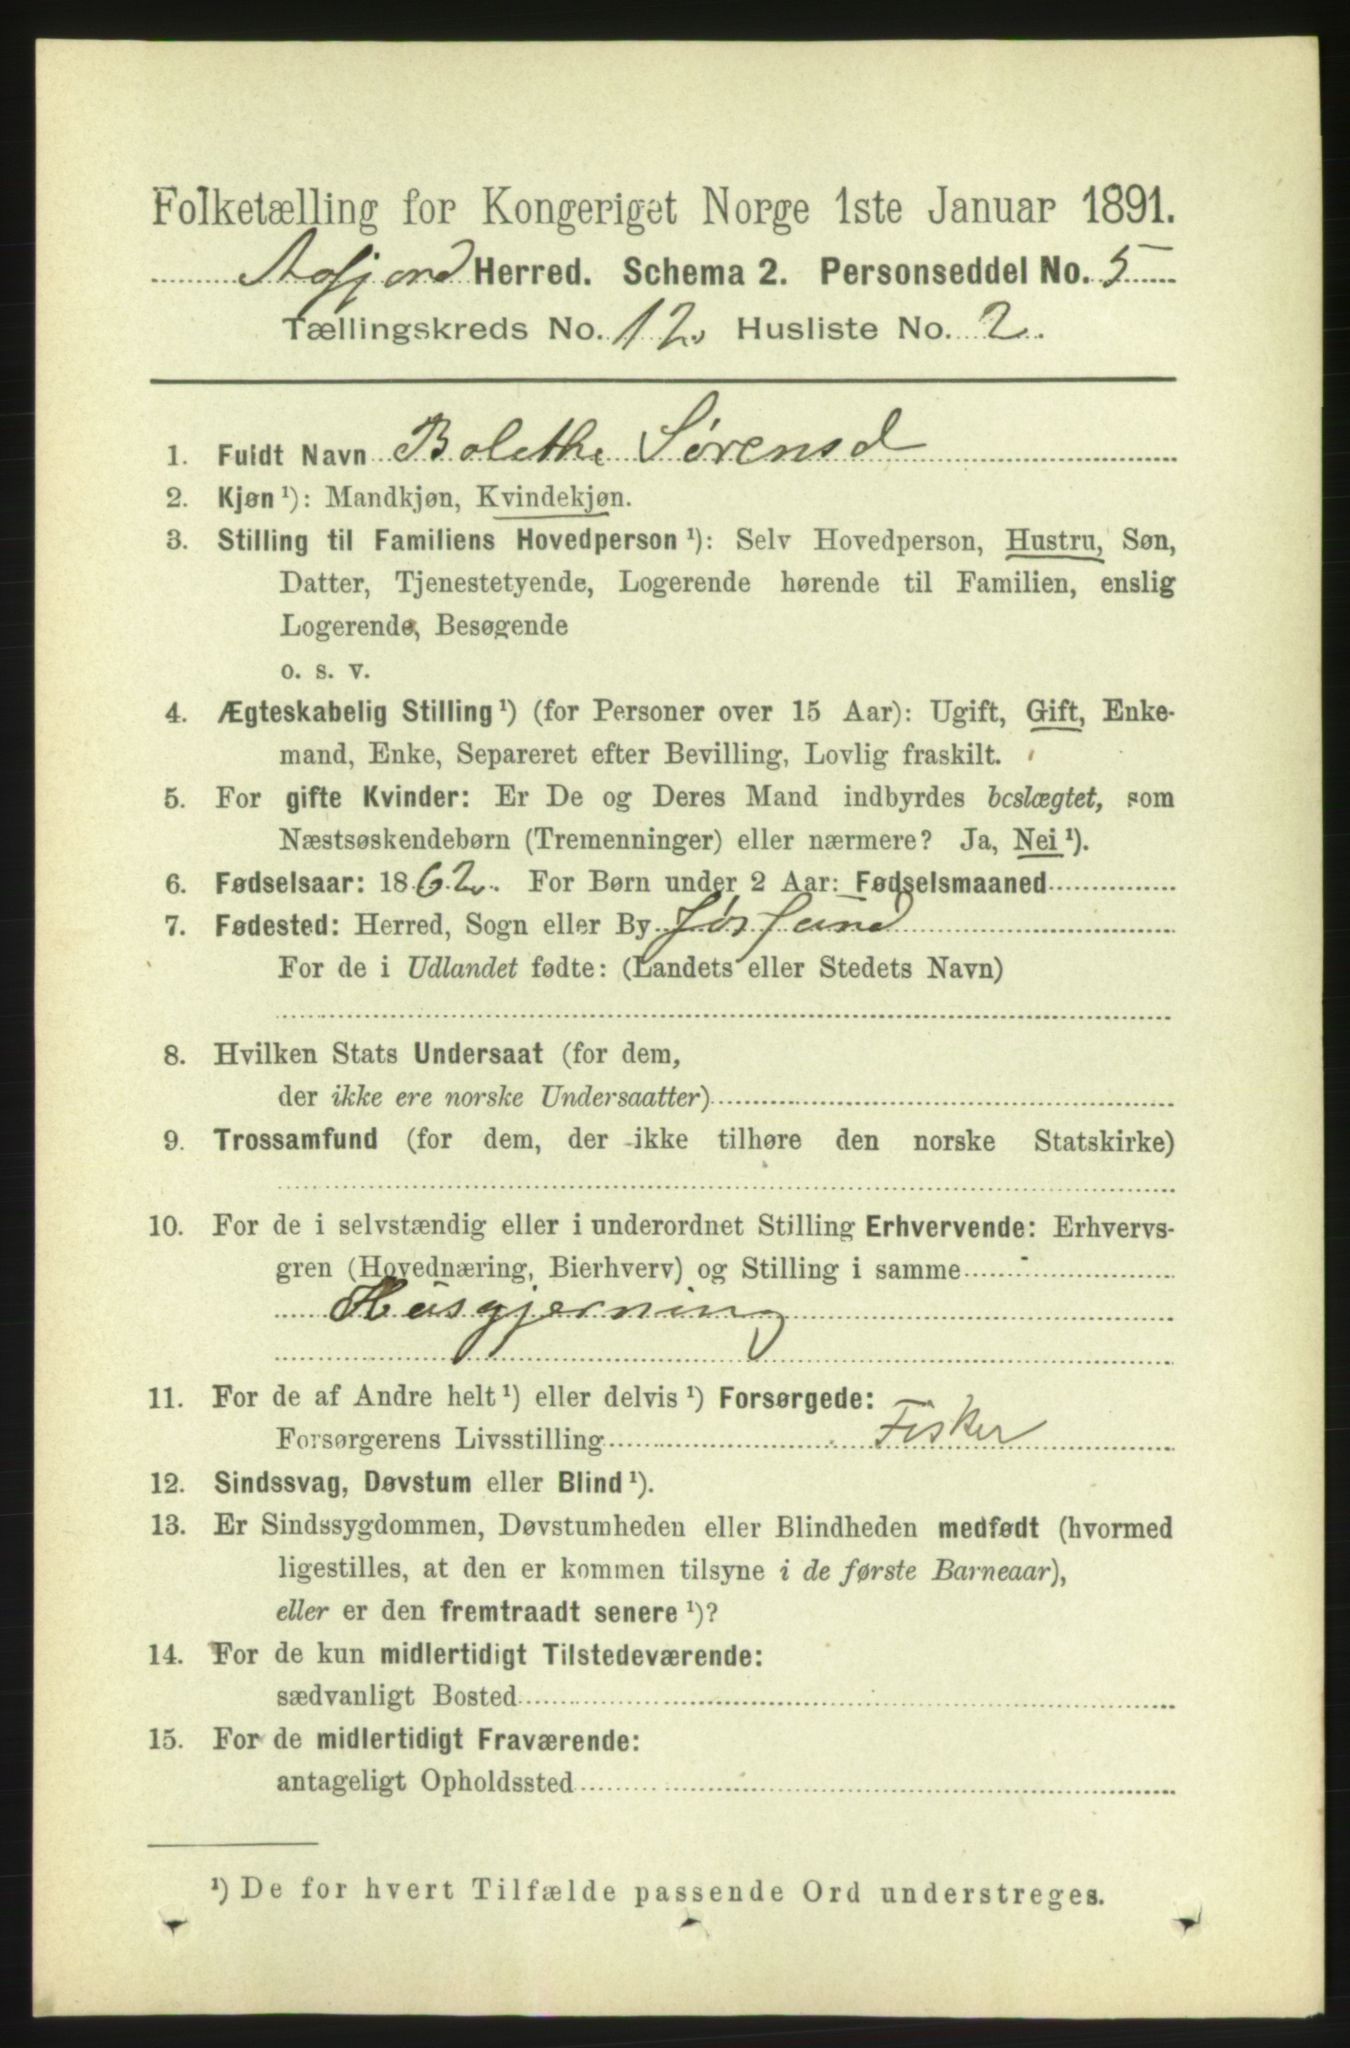 Folketælling for Kongeriget Norge 1ste Januar 1891.
Aafjord Herred. Schema 2. Personseddel No. 5
Tællingskreds No. 12. Husliste No. 2.
1. Fuldt Navn Bolethe Sørensd
2. Kjøn ¹): Mandkjøn, Kvindekjøn.
3. Stilling til Familiens Hovedperson ¹): Selv Hovedperson, Hustru, Søn,
Datter, Tjenestetyende, Logerende hørende til Familien, enslig
Logerende, Besøgende
o. s. v.
4. Ægteskabelig Stilling ¹) (for Personer over 15 Aar): Ugift, Gift, Enke-
mand, Enke, Separeret efter Bevilling, Lovlig fraskilt.
5. For gifte Kvinder: Er De og Deres Mand indbyrdes beslægtet, som
Næstsøskendebørn (Tremenninger) eller nærmere? Ja, Nei ¹).
6. Fødselsaar: 1862. For Børn under 2 Aar: Fødselsmaaned
7. Fødested: Herred, Sogn eller By Jøssund
For de i Udlandet fødte: (Landets eller Stedets Navn)
8. Hvilken Stats Undersaat (for dem,
der ikke ere norske Undersaatter)
9. Trossamfund (for dem, der ikke tilhøre den norske Statskirke)
10. For de i selvstændig eller i underordnet Stilling Erhvervende: Erhvervs-
gren (Hovednæring, Bierhverv) og Stilling i samme
Husgjerning
11. For de af Andre helt ¹) eller delvis ¹) Forsørgede:
Forsørgerens Livsstilling Fisker
12. Sindssvag, Døvstum eller Blind ¹).
13. Er Sindssygdommen, Døvstumheden eller Blindheden medfødt (hvormed
ligestilles, at den er kommen tilsyne i de første Barneaar),
eller er den fremtraadt senere ¹)?
14. For de kun midlertidigt Tilstedeværende:
sædvanligt Bosted
15. For de midlertidigt Fraværende:
antageligt Opholdssted
¹) De for hvert Tilfælde passende Ord understreges.